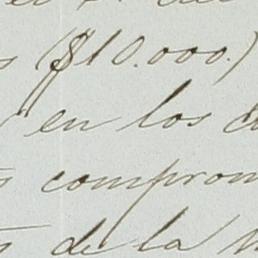 ($10.000.)
en los
comprom
de la